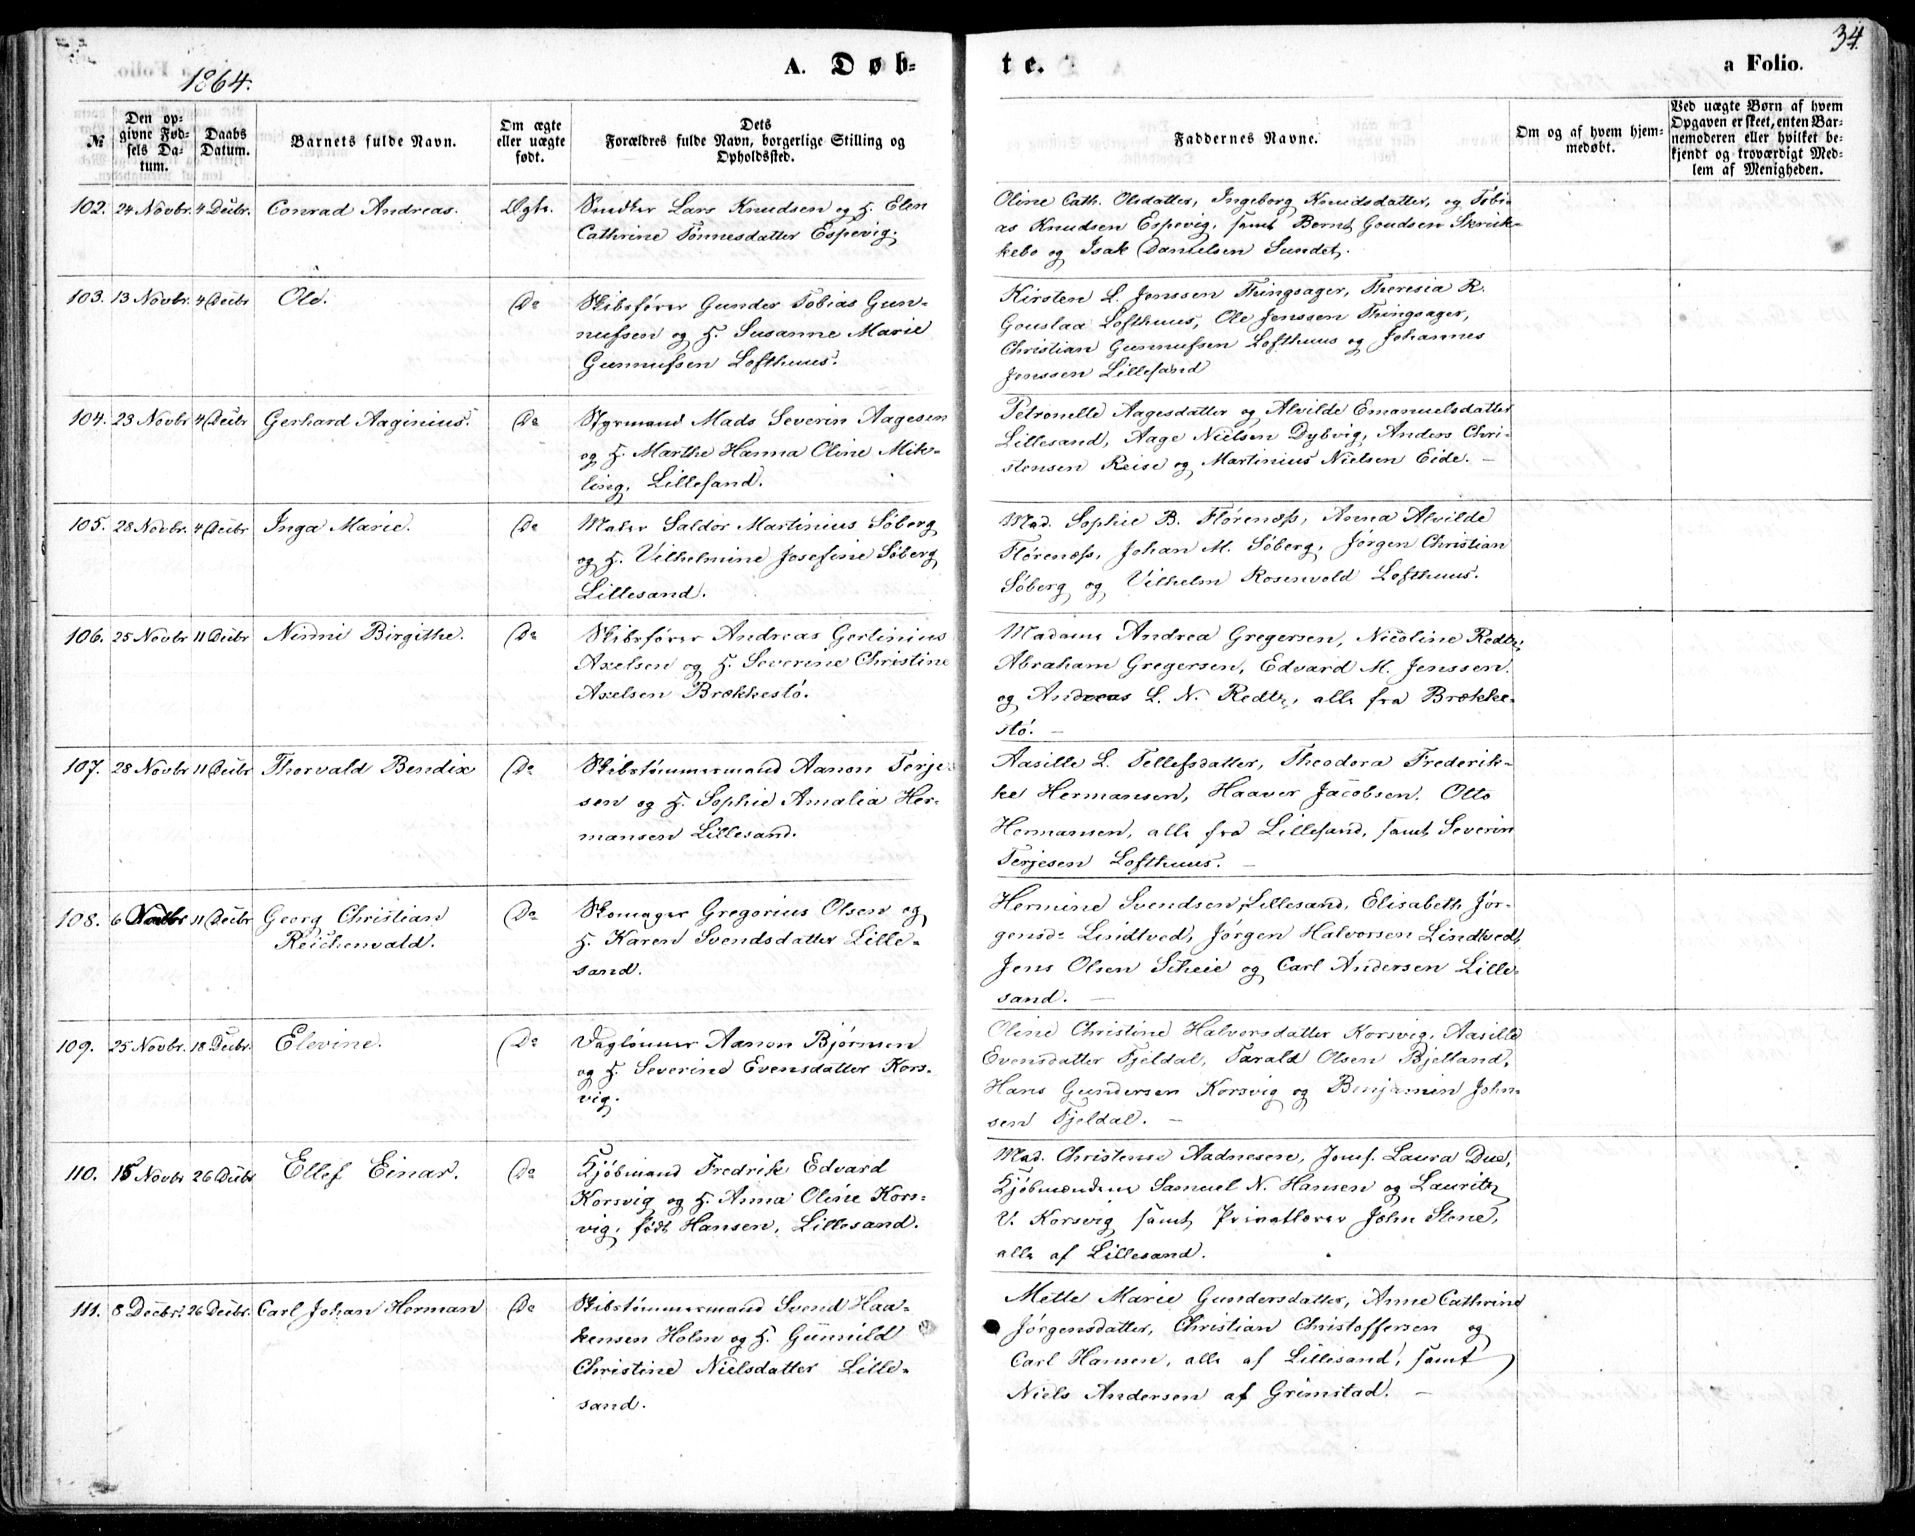 34.
1864.
A. Døb-
te.
a Folio.
№
Den op-
givne Fød-
sels Da-
tum.
Daabs
Datum.
Barnets fulde Navn.
Om ægte
eller uægte
født.
Dets
Forældres fulde Navn, borgerlige Stilling og
Opholdssted.
Faddernes Navne.
Om og af hvem hjem-
medøbt.
Ved uægte Børn af hvem
Opgaven er skeet, enten Bar-
nemoderen eller hvilket be-
kjendt og troværdigt Med-
lem af Menigheden.
102. 24 Novbr. 4 Decbr. Conrad Andreas. Ægte. Snedker Lars Knudsen og H. Elen
Cathrine Tønnesdatter Espevig.
Oline Cath. Olsdatter, Ingeborg Knudsdatter, og Tobi-
as Knudsen Espevig, samt Bernt Goudsen
kebo og Isak Danielsen Sundet.
103. 13 Novbr. 4 Decbr Ole. Do Skibsfører Gunder Tobias Gun-
nufsen og H. Susanne Marie
Gunnufsen Lofthuus.
Kirsten L. Jenssen Thingsager, Theresia R.
Gouslaa Lofthuus, Ole Jenssen Thingsager,
Christian Gunnufsen Lofthuus og Johannes
Jenssen Lillesand
104. 23 Novbr 4 Decbr Gerhard Aaginius. Do Styrmand Mads Severin Aagesen
og H. Marthe Hanna Oline Mik-
ling, Lillesand.
Petronelle Aagesdatter og Alvilde Emanuelsdatter
Lillesand, Aage Nielsen Dybvig, Anders Chri-
stensen Reise og Martinius Nielsen Eide. –
105. 28 Novbr. 4 Decbr Inga Marie. Do Maler Saldor Martinius Søberg
og H. Vilhelmine Josefine Søberg
Lillesand.
Mad. Sophie B. Flørenæss, Anna Alvilde
Flørenæss, Johan M. Søberg, Jørgen Christian
Søberg og Vilhelm Rosenvold Lofthuus.
106. 25 Novbr 11 Decbr Nimmi Birgithe. Do Skibsfører Andreas Gertinius
Axelsen og H. Severine Christine
Axelsen Brækkestø.
Madame Andrea Gregersen, Nicoline Redtz,
Abraham Gregersen, Edvard M. Jenssen.
og Andreas L. N. Redtz, alle fra Brække-
stø. –
107. 28 Novbr 11 Decbr Thorvald Bendix Do Skibstømmermand Aanon Terje-
sen og H. Sophie Amalia Her-
mansen Lillesand.
Aasille L. Tellefsdatter, Theodora Frederik-
ke Hermansen, Haaver Jacobsen. Otto
Hermansen, alle fra Lillesand, samt Severin
Terjesen Lofthuus. –
108. 6 Novbr 11 Decbr Georg Christian
Reichenvald. Do Skomager Gregorius Olsen og
H. Karen Svendsdatter Lille-
sand.
Hermine Svendsen, Lillesand, Elisabeth Jør-
gensd. Lindtved, Jørgen Halvorsen Lindtved,
Jens Olsen Scheie og Carl Andersen Lille-
sand. –
109. 25 Novbr. 18 Decbr. Elevine. Do Daglønner Aanon Bjørnsen
og H. Severine Evensdatter Kors-
vig.
Oline Christine Halvorsdatter Korsvig, Aasille
Evensdatter Fjeldal, Tarald Olsen Bjelland,
Hans Gundersen Korsvig og Benjamin John-
sen Fjeldal. –
110. 15 Novbr 26 Decbr Ellef Einar. Do Kjøbmand Fredrik Edvard
Korsvig og H. Anna Oline Kors-
vig, født Hansen, Lillesand.
Mad. Christense Aadnesen, Jomf. Laura Due,
Kjøbmændene Samuel N. Hansen og Lauritz
V. Korsvig samt Privatlærer John Stene,
alle af Lillesand.
111. 8 Decbr. 26 Decbr. Carl Johan Herman Do Skibstømmermand Svend Haa-
kensen Holm og H. Gunnild
Christine Nielsdatter Lille-
sand.
Mette Marie Gundersdatter, Anne Cathrine
Jørgensdatter, Christian Christoffersen og
Carl Hansen, alle af Lillesand, samt
Niels Andersen af Grimstad. –